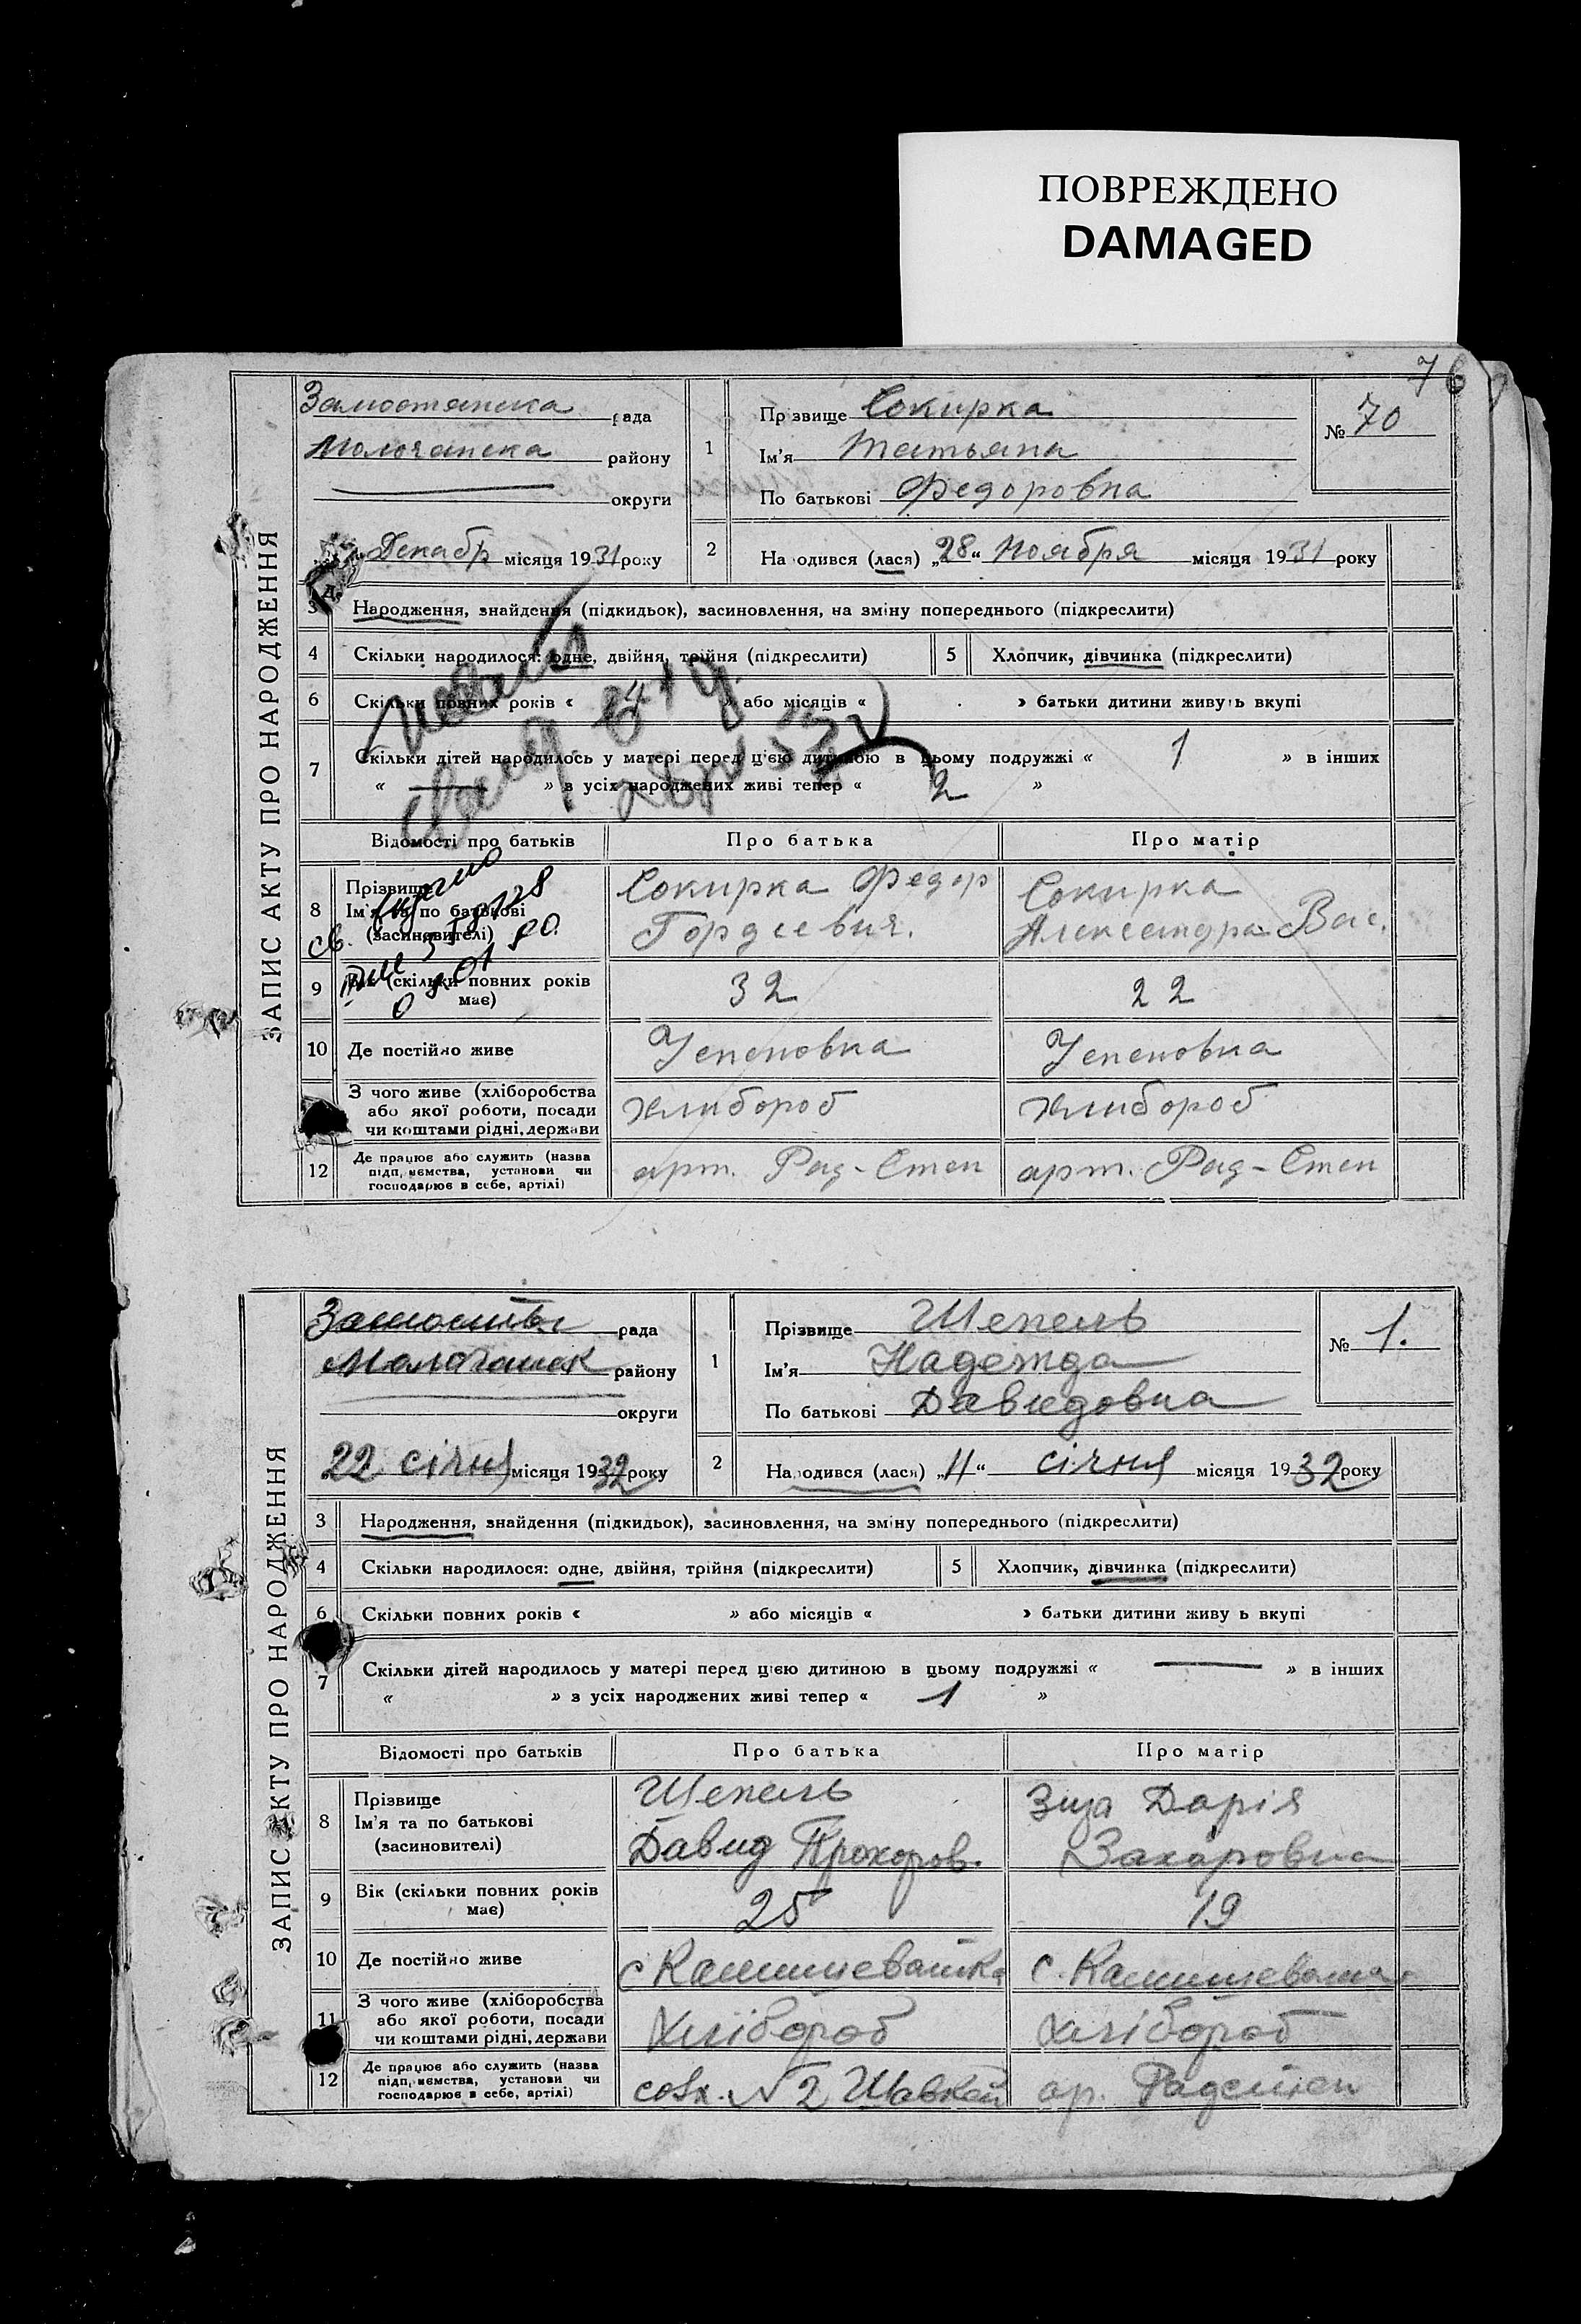 ПОВРЕЖДЕНО
DAMAGED
76
ЗАПИС АКТУ ПРО НАРОДЖЕННЯ
Замостянська рада
Молочанска району
округи
Декабр місяця 1931 року
1
Прізвище Сокирка
Ім'я Татьяна
По батькові Федоровна
№ 70
2
Народився (лася) „28“ Ноября місяця 1931 року
3 Народження, знайдення (підкидьок), засиновлення, на зміну попереднього (підкреслити)
4 Скільки народилося: одне, двійня, трійня (підкреслити) 5 Хлопчик, дівчинка (підкреслити)
6 Скільки повних років « » або місяців « » батьки дитини живуть вкупі
7 Скільки дітей народилось у матері перед цією дитиною в цьому подружжі « 1 » в інших
« — » з усіх народжених живі тепер « 2 »
Відомості про батьків Про батька Про матір
8 Прізвище
Ім'я та по батькові
(засиновителі)
Сокирка Федор
Гордиевич.
Сокирка
Александра Вас.
9 Вік (скільки повних років має) 32 22
10 Де постійно живе Успеновка Успеновка
З чого живе (хліборобства
або якої роботи, посади
чи коштами рідні, держави
Хлибороб Хлибороб
12 Де працює або служить (назва
підприємства, установи чи
господарює в себе, артілі)
арт. Рад-Степ арт. Рад-Степ
ЗАПИС АКТУ ПРО НАРОДЖЕННЯ
рада
Молочанск району
округи
„22 січня місяця 1932 року
1
Прізвище Шепель
Ім'я Надежда
По батькові Давидовна
№ 1.
2
Народився (лася) „11“ січня місяця 1932 року
3 Народження, знайдення (підкидьок), засиновлення, на зміну попереднього (підкреслити)
4 Скільки народилося: одне, двійня, трійня (підкреслити) 5 Хлопчик, дівчинка (підкреслити)
6 Скільки повних років « » або місяців « » батьки дитини живу ь вкупі
7 Скільки дітей народилось у матері перед цією дитиною в цьому подружжі « — » в інших
« » з усіх народжених живі тепер « 1 »
Відомості про батьків Про батька Про матір
8 Прізвище
Ім'я та по батькові
(засиновителі)
Шепель
Давид Прохоров.
Дарія
Захаровна
9 Вік (скільки повних років має) 25 19
10 Де постійно живе с Камишеватка с. Камишеватка
11 З чого живе (хліборобства
або якої роботи, посади
чи коштами рідні, держави
Хлібороб хлібороб
12 Де працює або служить (назва
підприємства, установи чи
господарює в себе, артілі)
совх. №2 ар. Радстеп